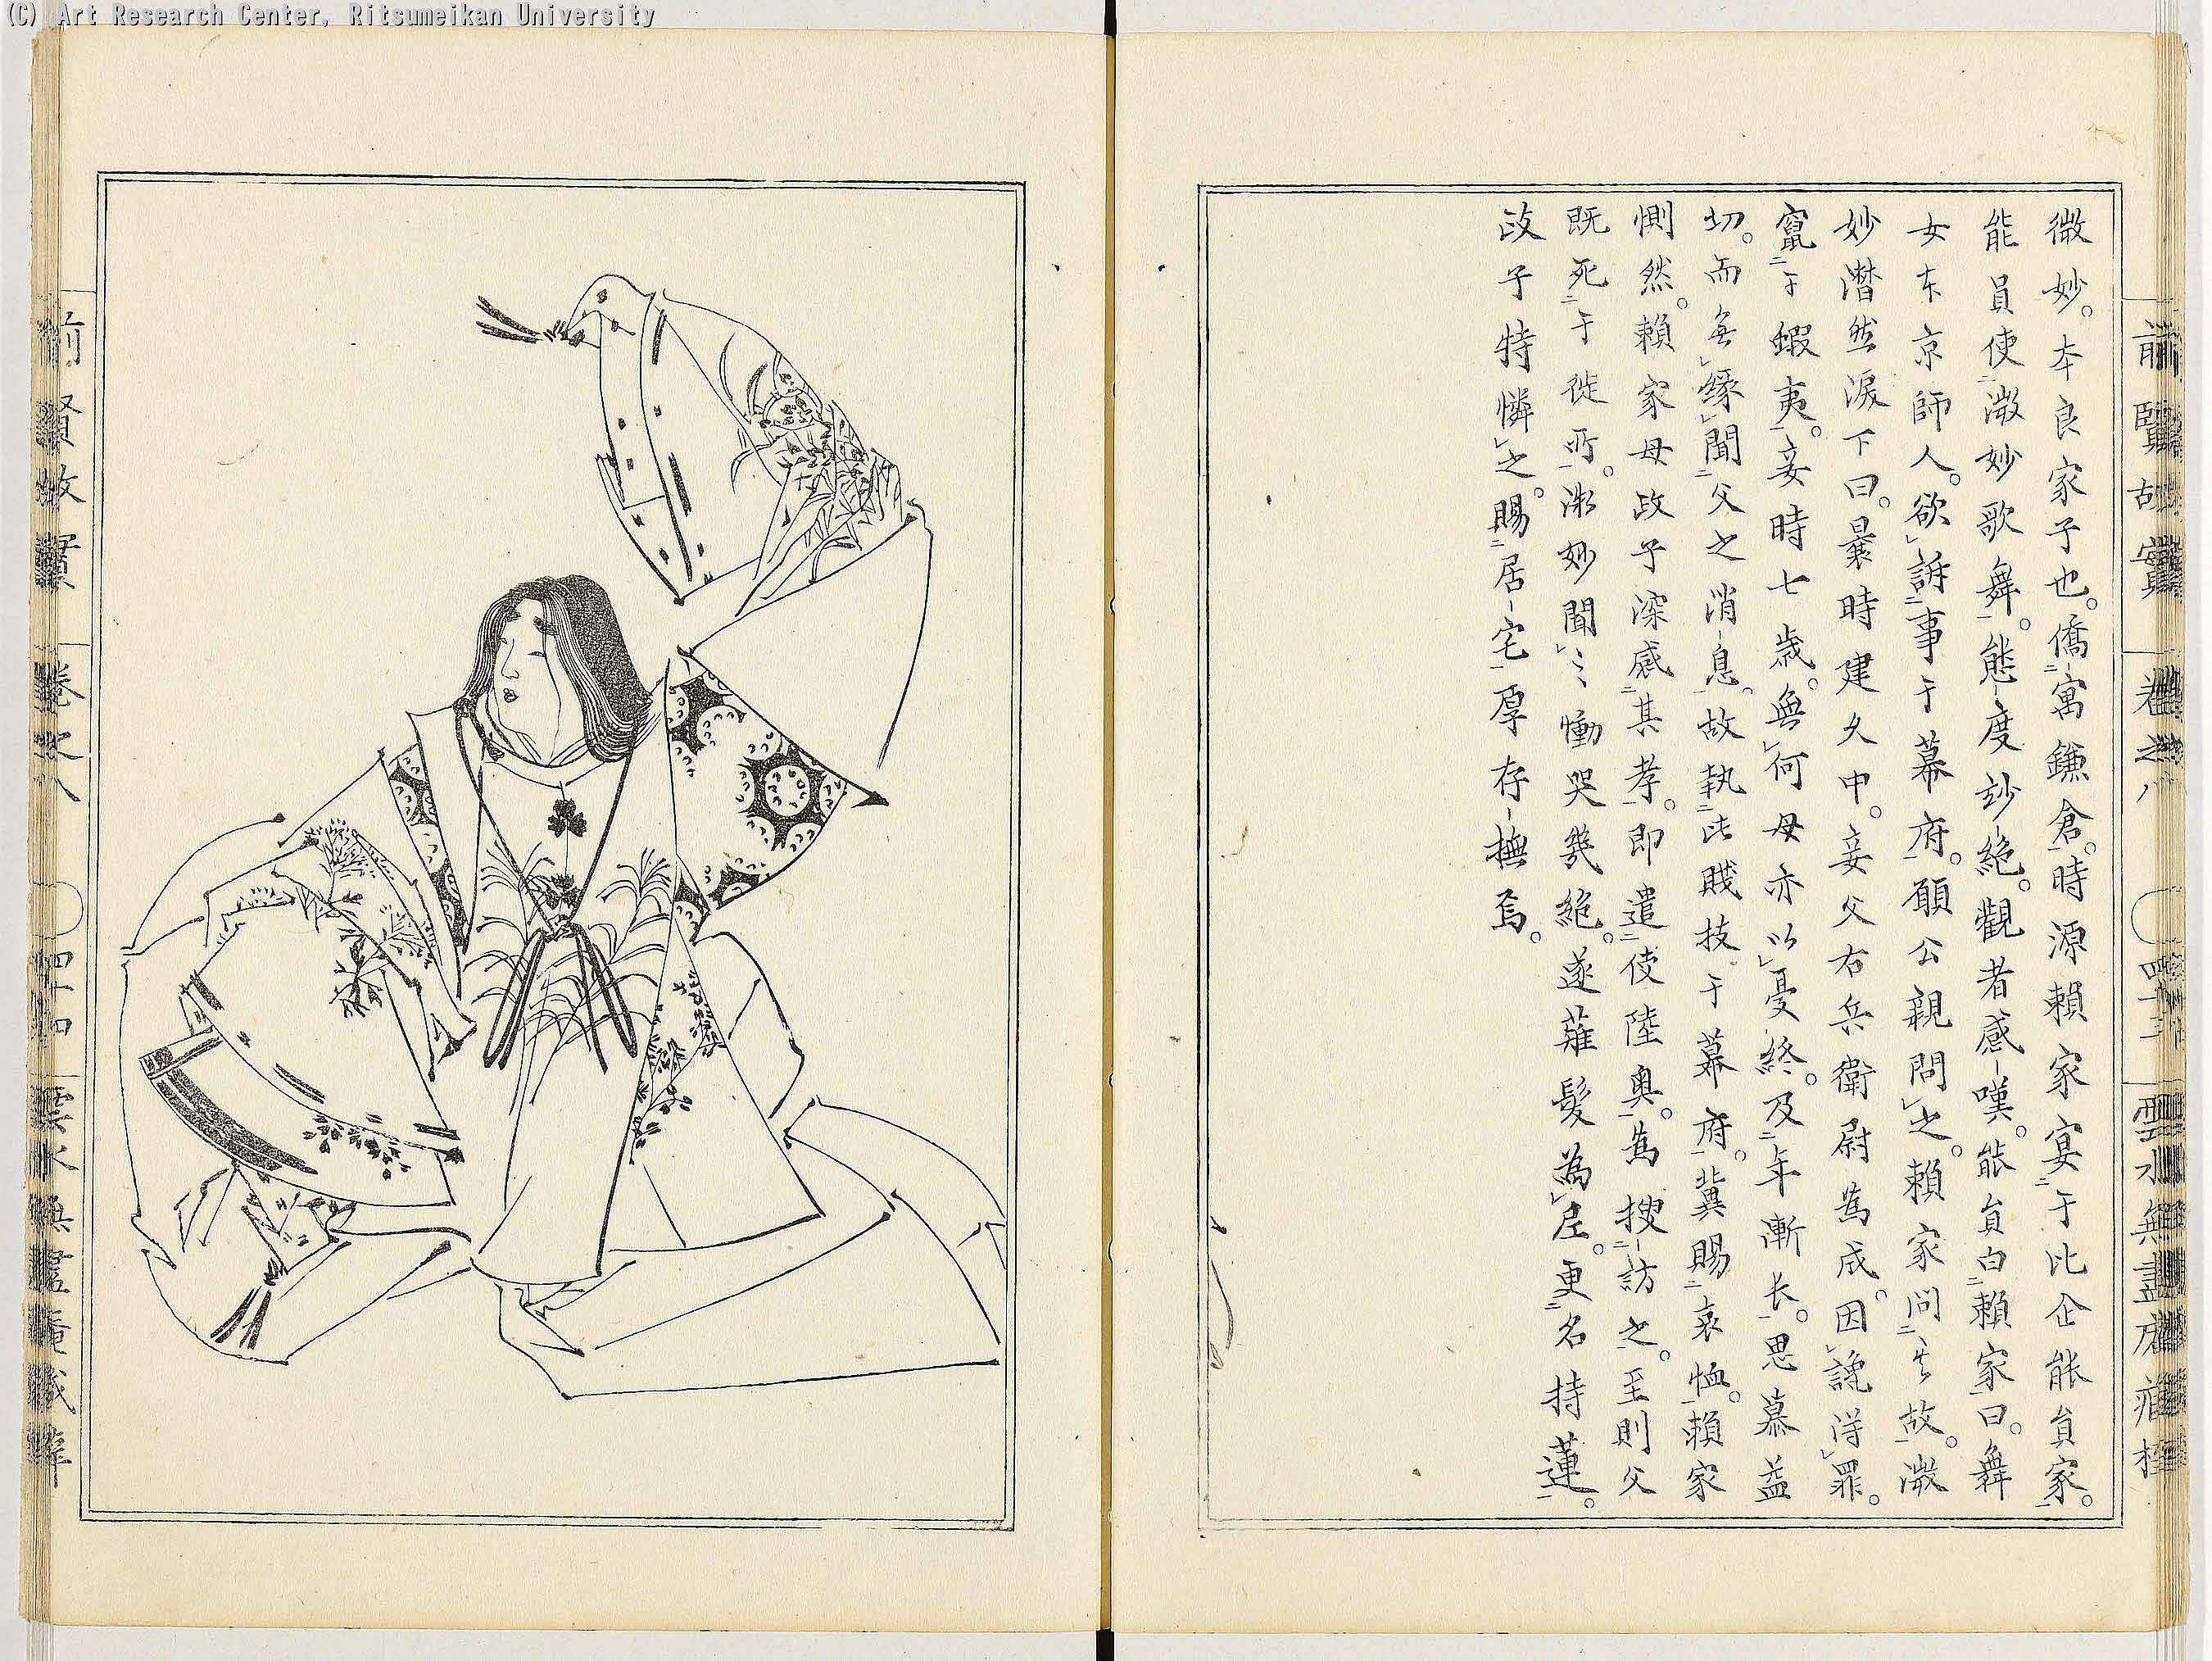 (C) Art Research Center, Ritsumeikan University
前賢故實 卷之八 〇四十三 雲水無盡庵
微妙。本良家子也。僑寓鎌倉。時源頼家宴于比企能員家。
能員使微妙歌舞。態度妙絶。觀者感嘆。能員白頼家曰。舞
女本京師人。欲訴事于幕府。願公親問之。頼家問其故。微
妙潸然涙下曰。曩時建久中。妾父右兵衛尉為成。因讒得罪。
竄于蝦夷。妾時七歳。無何母亦以憂終。及年漸長。思慕益
切。而無縁聞父之消息。故執此賤技于幕府。冀賜哀恤。頼家
惻然。頼家母政子深感其孝。即遣使陸奥。為搜訪之。至則父
既死于徙所。微妙聞之慟哭幾絶。遂薙髮為尼。更名持蓮。
政子特憐之。賜居宅厚存撫焉。
前賢故實 卷之八 〇四十四 雲水無盡庵藏梓